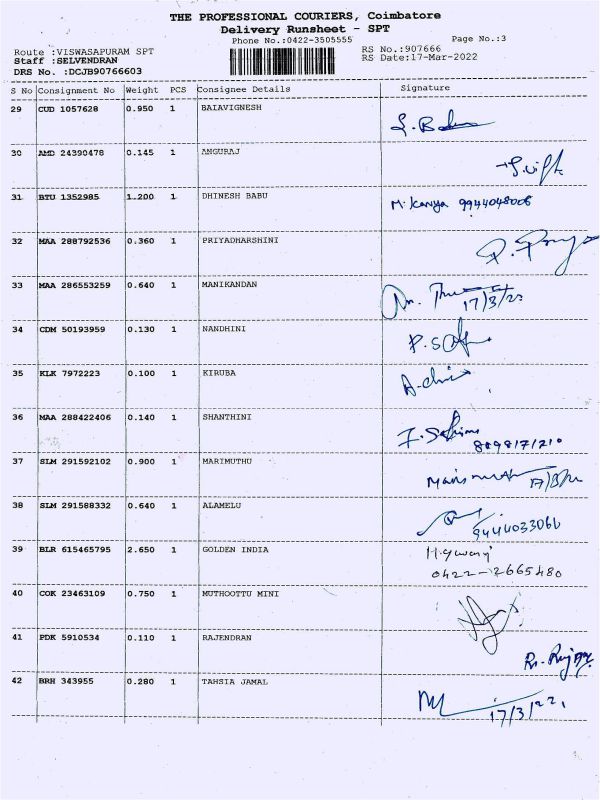 THE PROFESSIONAL COURIERS, Coimbatore
Delivery Runsheet - SPT
Phone No.:0422-3505555 Page No.:3
Route :VISWASAPURAM SPT RS No.:907666
Staff :SELVENDRAN RS Date:17-Mar-2022
DRS No. :DCJB90766603
S No Consignment No Weight PCS Consignee Details Signature
29 CUD 1057628 0.950 1 BAIAVIGNESH
30 AMD 24390478 0.145 1 ANGURAJ
31 BTU 1352985 1.200 1 DHINESH BABU M. Kanya 9944048006
32 MAA 288792536 0.360 1 PRIYADHARSHINI
33 MAA 286553259 0.640 1 MANIKANDAN
17/3/22
34 CDM 50193959 0.130 1 NANDHINI
35 KLK 7972223 0.100 1 KIRUBA
36 MAA 288422406 0.140 1 SHANTHINI
8898171210
37 SLM 291592102 0.900 1 MARIMUTHU
38 SLM 291588332 0.640 1 ALAMELU
9444033066
39 BLR 615465795 2.650 1 GOLDEN INDIA
0422-2665480
40 COK 23463109 0.750 1 MUTHOOTTU MINI
41 PDK 5910534 0.110 1 RAJENDRAN
42 BRH 343955 0.280 1 TAHSIA JAMAL
17/3/22